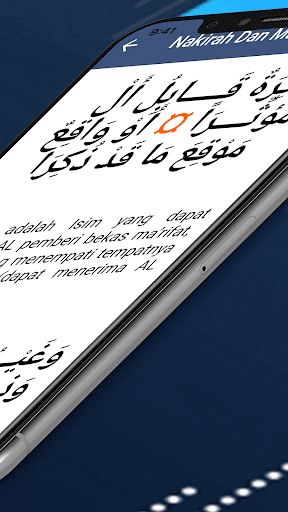 9:41
Nakirah Dan M
ـرَةٌ قَــابِلُ أَلْ
مُؤَثِّــرًا ¤ أَوْ وَاقِعٌ
مَوْقِعَ مَا قَدْ ذُكِرَا
adalah Isim yang dapat
AL pemberi bekas ma'rifat,
g menempati tempatnya
dapat menerima AL
وَغَيْـ